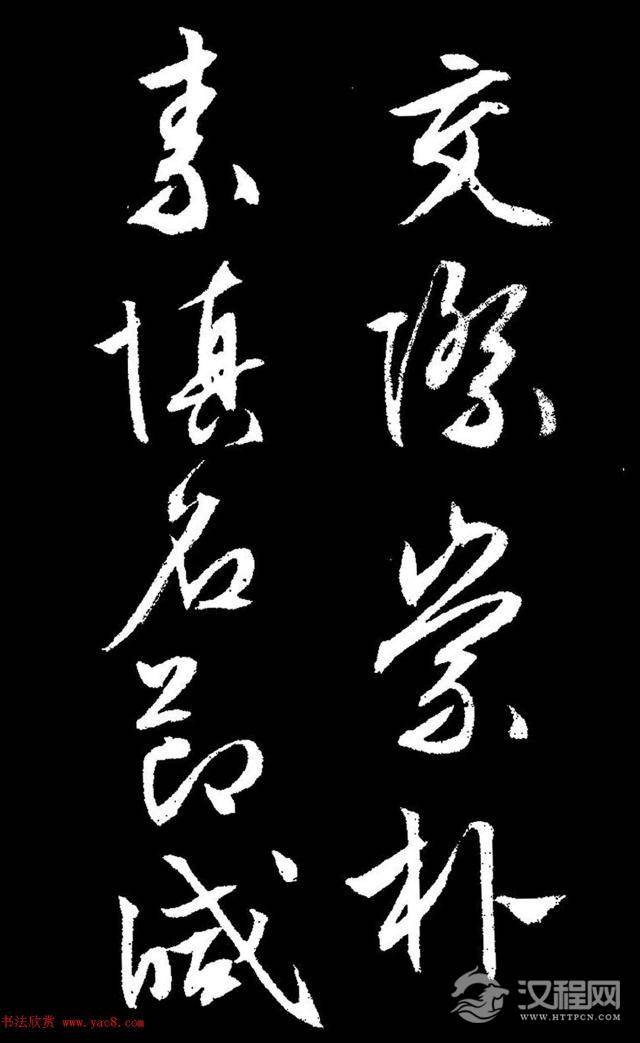 交際崇朴
素慎名節
汉程网
WWW.HTTPCN.COM
书法欣赏 www.yac8.com